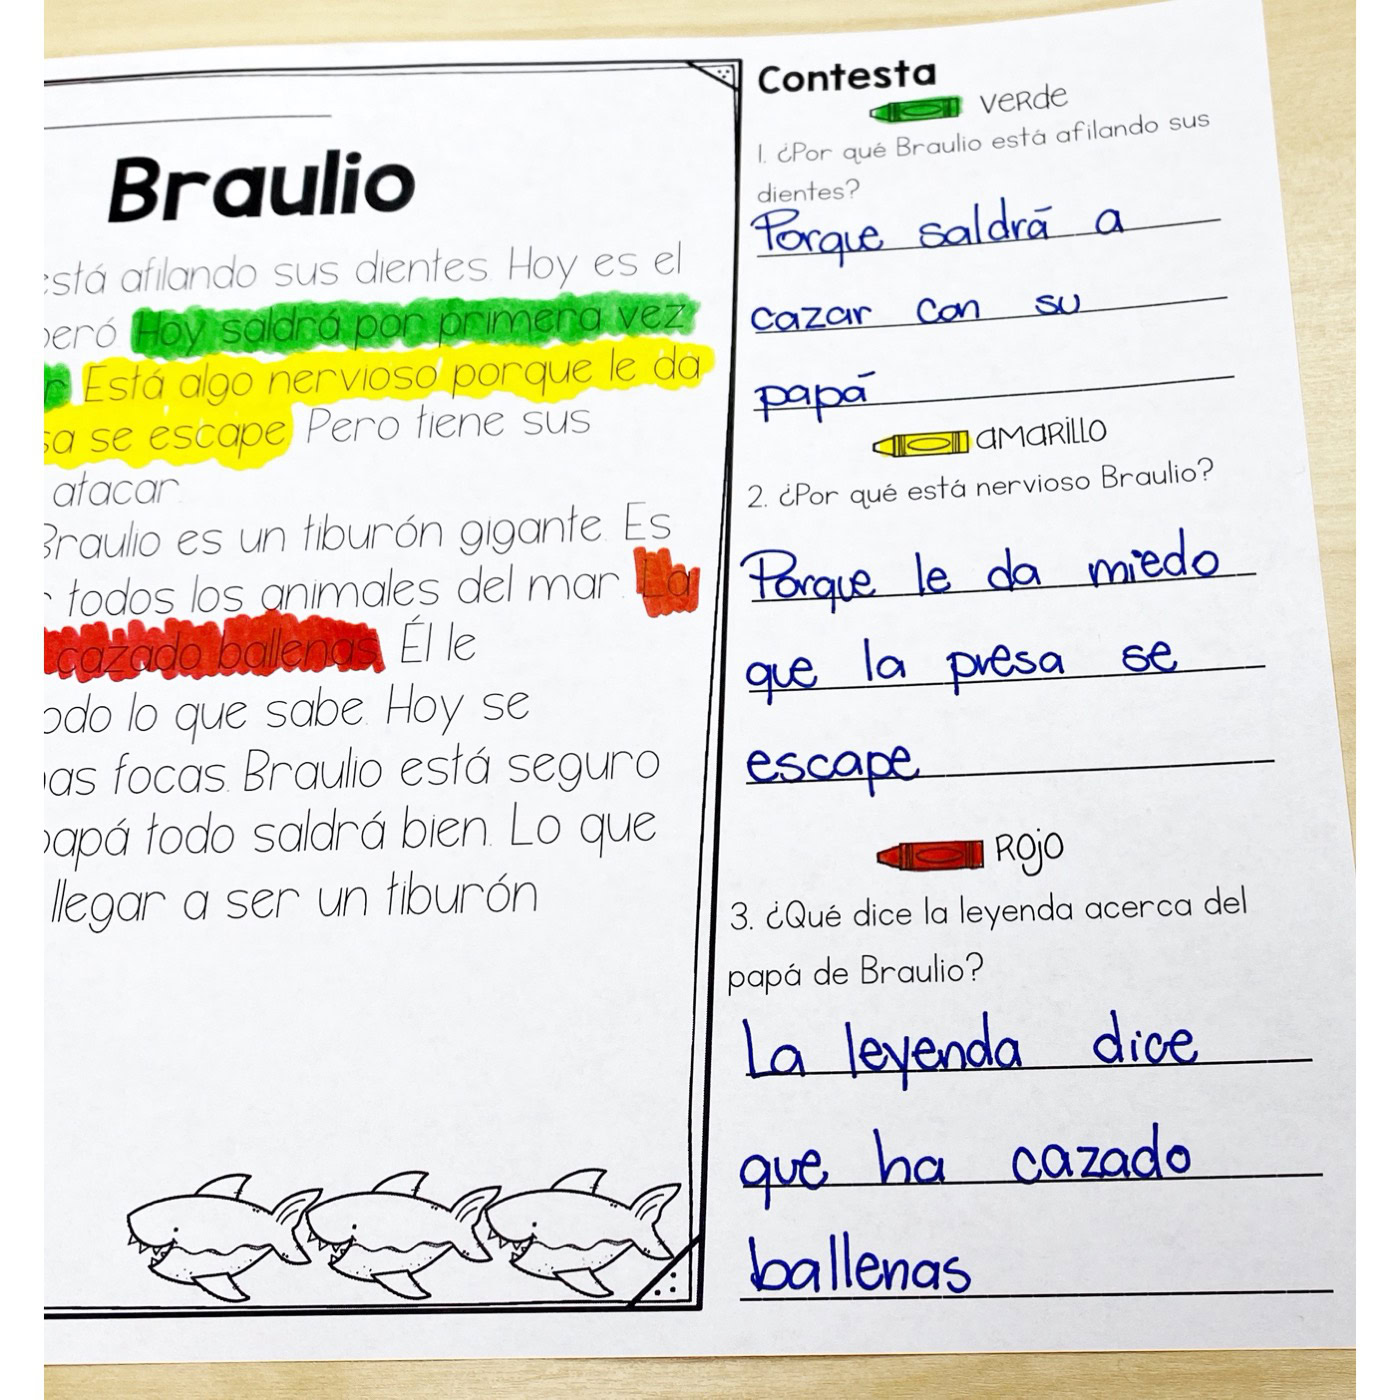 Braulio
está afilando sus dientes. Hoy es el
Hoy saldrá por primera vez
Está algo nervioso porque le da
se escape. Pero tiene sus
atacar.
Braulio es un tiburón gigante. Es
todos los animales del mar. La
cazado ballenas. Él le
lo que sabe. Hoy se
focas. Braulio está seguro
papá todo saldrá bien. Lo que
llegar a ser un tiburón
Contesta
verde
1. ¿Por qué Braulio está afilando sus
dientes?
Porque saldrá a
cazar con su
papá
amarillo
2. ¿Por qué está nervioso Braulio?
Porque le da miedo
que la presa se
escape
Rojo
3. ¿Qué dice la leyenda acerca del
papá de Braulio?
La leyenda dice
que ha cazado
ballenas